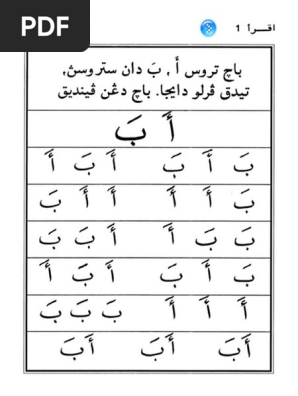 PDF
اقــرأ 1
باچ تروس أَ , بَ دان ستروسڽ,
تيدق ڤرلو دايجا. باچ دڠن ڤينديق
أَ بَ
بَ أَ بَ أَ بَ أَ
بَ أَ أَ أَ أَ بَ
بَ بَ أَ أَ بَ بَ
بَ أَ بَ أَ بَ أَ
أَ أَ أَ بَ بَ بَ
أَبَ أَبَ أَبَ